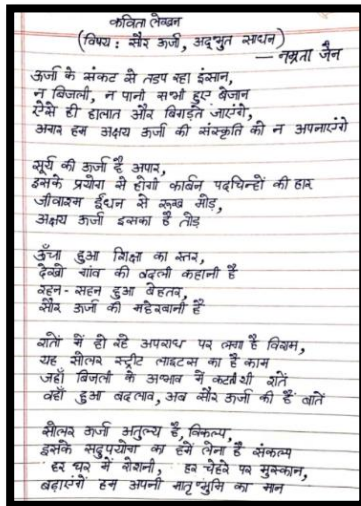 कविता लेखन
(विषय: सौर ऊर्जा, अद्भुत साधन)
— नम्रता जैन
ऊर्जा के संकट से तडप रहा इंसान,
न बिजली, न पानी सभी हुए बेजान
ऐसे ही हालात और बिगड़ते जाएंगे,
अगर हम अक्षय ऊर्जा की संस्कृति को न अपनाएंगे
सूर्य की ऊर्जा है अपार,
इसके प्रयोग से होगी कार्बन पदचिन्हों की हार
जीवाश्म ईंधन से रूख मोड़,
अक्षय ऊर्जा इसका है तोड़
ऊँचा हुआ शिक्षा का स्तर,
देखो गांव की बदली कहानी है
रहन-सहन हुआ बेहतर,
सौर ऊर्जा की महेरबानी है
रातों में हो रहे अपराध पर लगा है विराम,
यह सोलर स्ट्रीट लाइटस का है काम
जहाँ बिजली के अभाव में कटती थी रातें
वहाँ हुआ बदलाव, अब सौर ऊर्जा की हैं बातें
सोलर ऊर्जा अतुल्य है, विकल्प,
इसके सदुपयोग का हमें लेना है संकल्प
हर घर में रोशनी, हर चेहरे पर मुस्कान,
बढ़ाएंगें हम अपनी मातृभूमि का मान